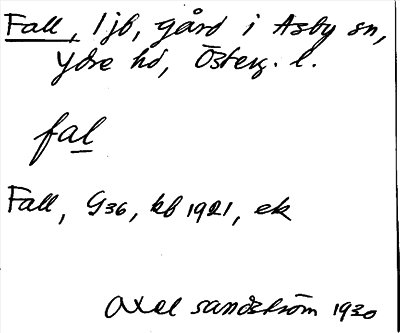 Fall, 1 jb, gård i Asby sn,
Ydre hd, Österg. l.
fal
Fall, G36, kb 1921, ek
Axel Sandström 1930